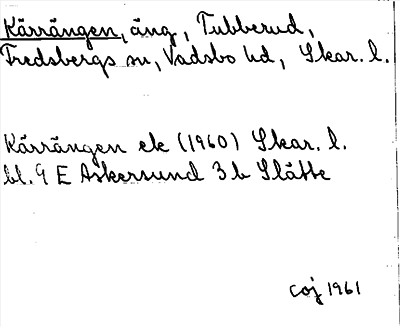 Kärrängen, äng, Tubberud,
Fredsbergs sn, Vadsbo hd, Skar. l.
Kärrängen ek (1960) Skar. l.
bl. 9 E Askersund 3 b Slätte
coj 1961